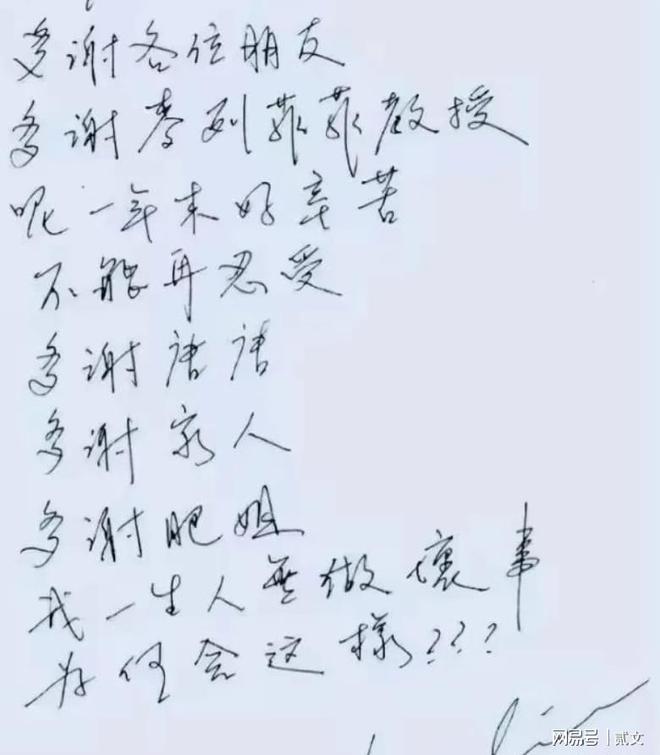 多谢各位朋友
多谢麥列菲菲教授
呢一年來好辛苦
不能再忍受
多谢唐唐
多谢家人
多谢肥姐
我一生人無做壞事
为何会这樣???
网易号 | 貳文